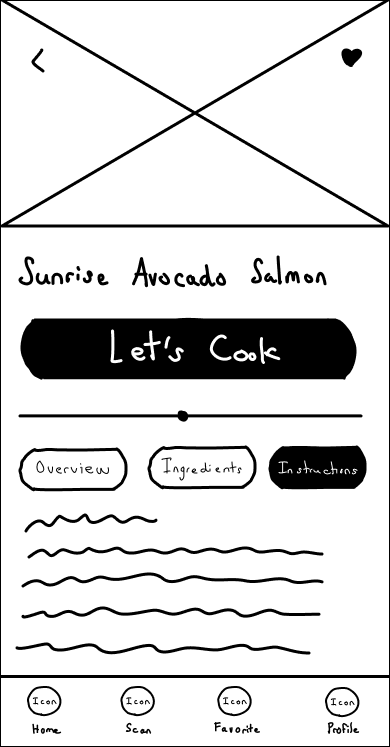 Sunrise Avocado Salmon
Let's Cook
Overview Ingredients Instructions
Icon Icon Icon Icon
Home Scan Favorite Profile